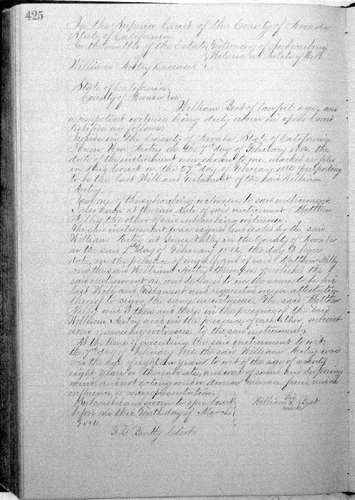 425
In the Superior Court of the County of Nevada
State of California
In the matter of the Estate Testimony of Subscribing
of Witness to Probate of Will
William Deceased
State of California
County of Nevada ss
William Best of lawful age, and
a competent witness being duly sworn in open Court
testifies as follows
I reside in the County of Nevada State of California
I knew Wm on the 7th day of February 1914 the
date of the instrument now shown to me marked as filed
in this Court on the 27 day of February 1914 purporting
to be the last Will and testament of the said William
I am one of the subscribing witnesses to said instrument
I also knew at the said date of said instrument Matthew
the other of said subscribing witnesses
The said instrument was signed and sealed by the said
William at Grass Valley in the County of Nevada
on the said 7th day of February 1914 the day it bears
date, in the presence of myself and of said Matthew
and the said William thereupon published the
said instrument as and declared to me the same to be his
last Will and Testament and requested me in attestation
thereof to sign the same as witness. The said Matthew
and I then and there in the presence of the said
William and in the presence of each other subscribed
our names as witnesses to the said instrument
At the time of executing the said instrument to wit
the 7 day of February 1914 the said William was
over the age of eighteen years to wit of the age of
eight years or thereabouts, and was of sound and disposing
mind and not acting under duress menace fraud undue
influence or misrepresentation
Subscribed and sworn to open Court
before me this day of March
1914
William his X mark Best
Clerk